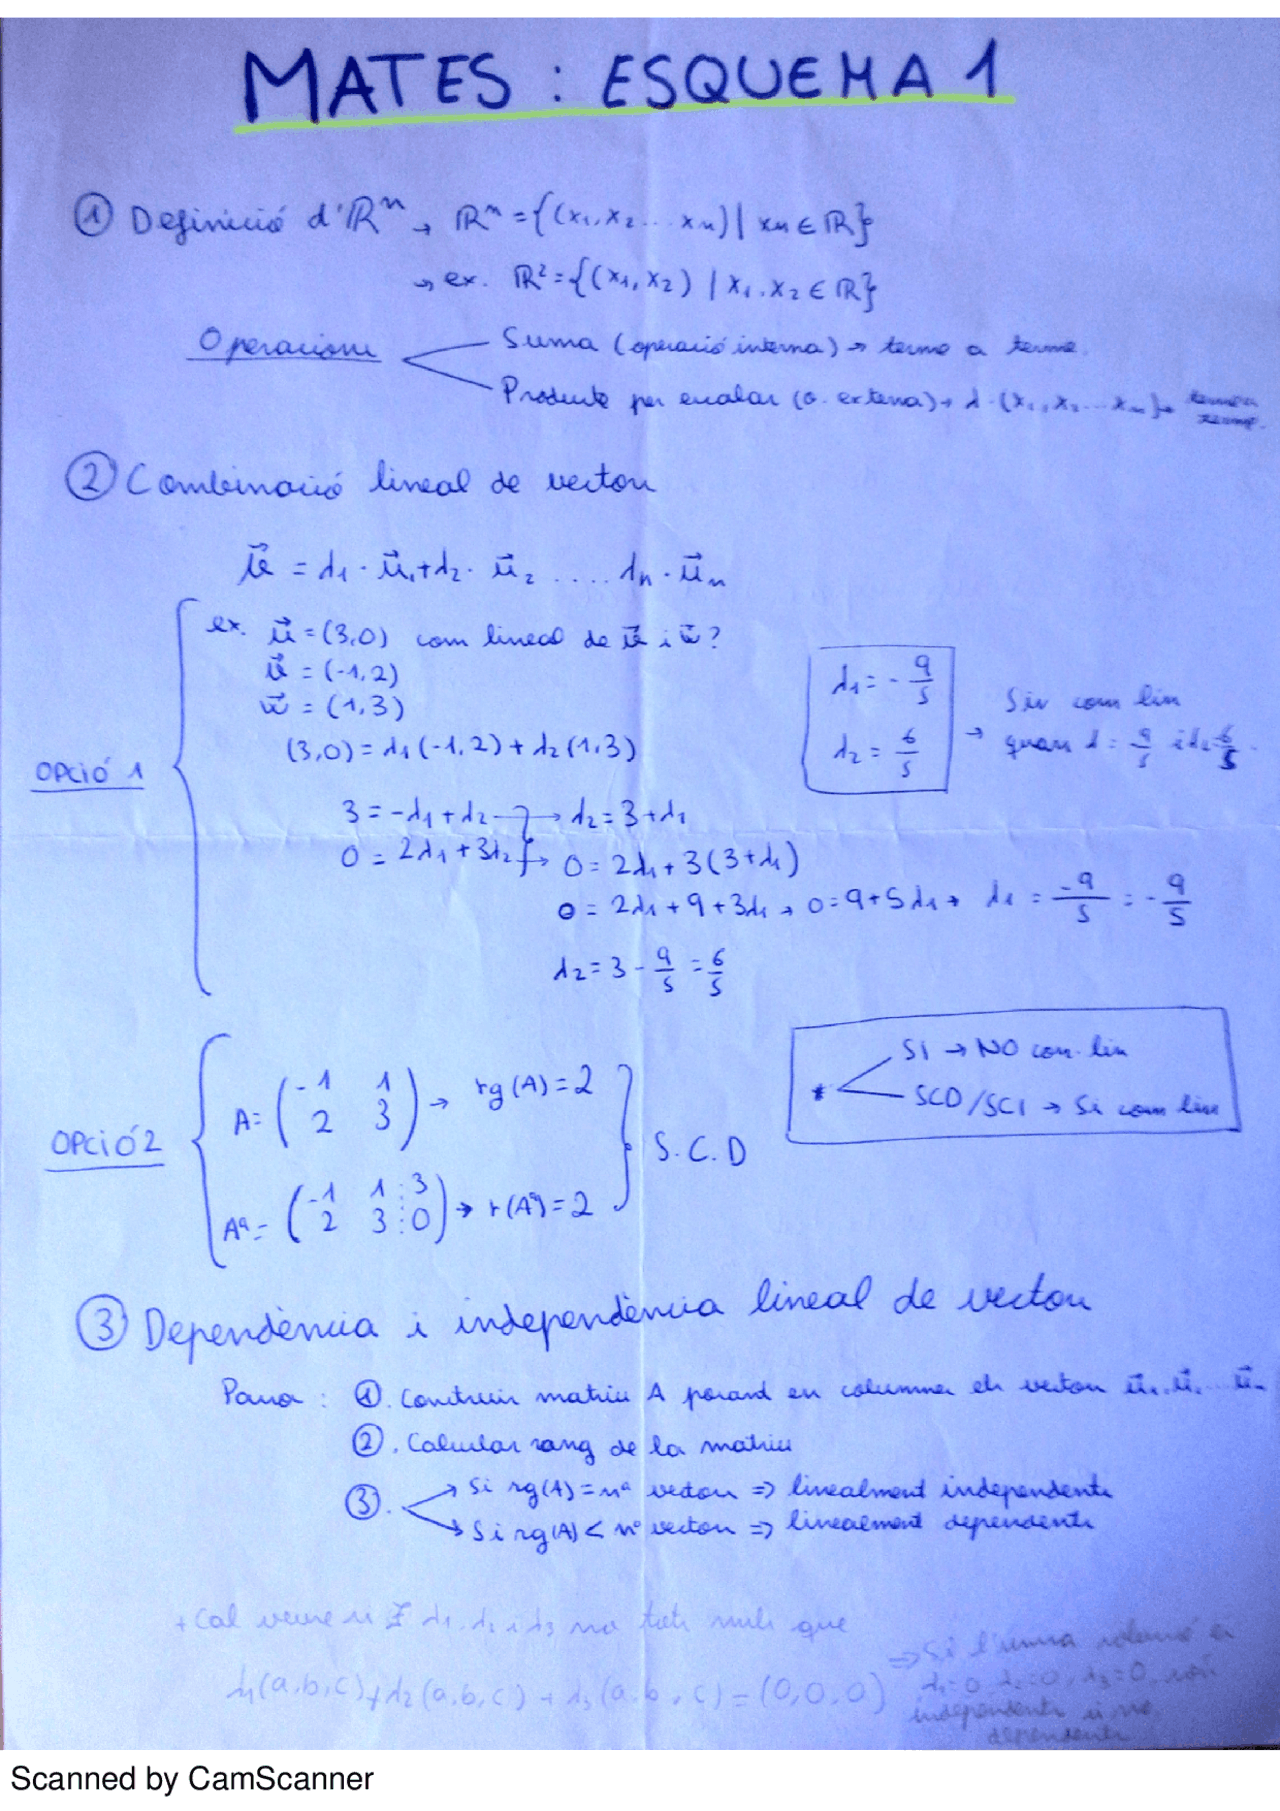 MATES : ESQUEMA 1
① Definició d'ℝⁿ → ℝⁿ = {(x₁, x₂ ... xₙ) | xₙ ∈ ℝ}
→ ex. ℝ² = {(x₁, x₂) | x₁, x₂ ∈ ℝ}
Operacions
Suma (operació interna) → terme a terme.
Producte per escalar (o. externa) → λ · (x₁, x₂ ... xₙ) → terme a terme.
② Combinació lineal de vectors
v⃗ = λ₁ · u⃗₁ + λ₂ · u⃗₂ .... λₙ · u⃗ₙ
OPCIÓ 1
ex. u⃗ = (3,0) com lineal de v⃗ i w⃗?
v⃗ = (-1,2)
w⃗ = (1,3)
(3,0) = λ₁(-1,2) + λ₂(1,3)
3 = -λ₁ + λ₂ → λ₂ = 3 + λ₁
0 = 2λ₁ + 3λ₂ → 0 = 2λ₁ + 3(3 + λ₁)
0 = 2λ₁ + 9 + 3λ₁ → 0 = 9 + 5λ₁ → λ₁ = -9/5 = -9/5
λ₂ = 3 - 9/5 = 6/5
λ₁ = -9/5
λ₂ = 6/5
→ com lin
quan λ = 9/5 i λ₂ 6/5
OPCIÓ 2
A = (-1 1
2 3) → rg(A) = 2
Aᵃ = (-1 1 ⋮ 3
2 3 ⋮ 0) → r(Aᵃ) = 2
S.C.D
*
SI → NO com. lin
SCD/SCI → Si com lin
③ Dependència i independència lineal de vectors
Passos : ①. Construir matriu A posant en columnes els vectors u⃗₁, u⃗₂ ... u⃗ₙ
②. Calcular rang de la matriu
③. → Si rg(A) = nº vectors ⇒ linealment independents
→ Si rg(A) < nº vectors ⇒ linealment dependents
+ Cal veure si ∃ λ₁, λ₂ i λ₃ no tots nuls que
λ₁(a,b,c) + λ₂(a,b,c) + λ₃(a,b,c) = (0,0,0)
⇒ Si l'única solució és
λ₁=0, λ₂=0, λ₃=0, són
independents si no
dependents
Scanned by CamScanner